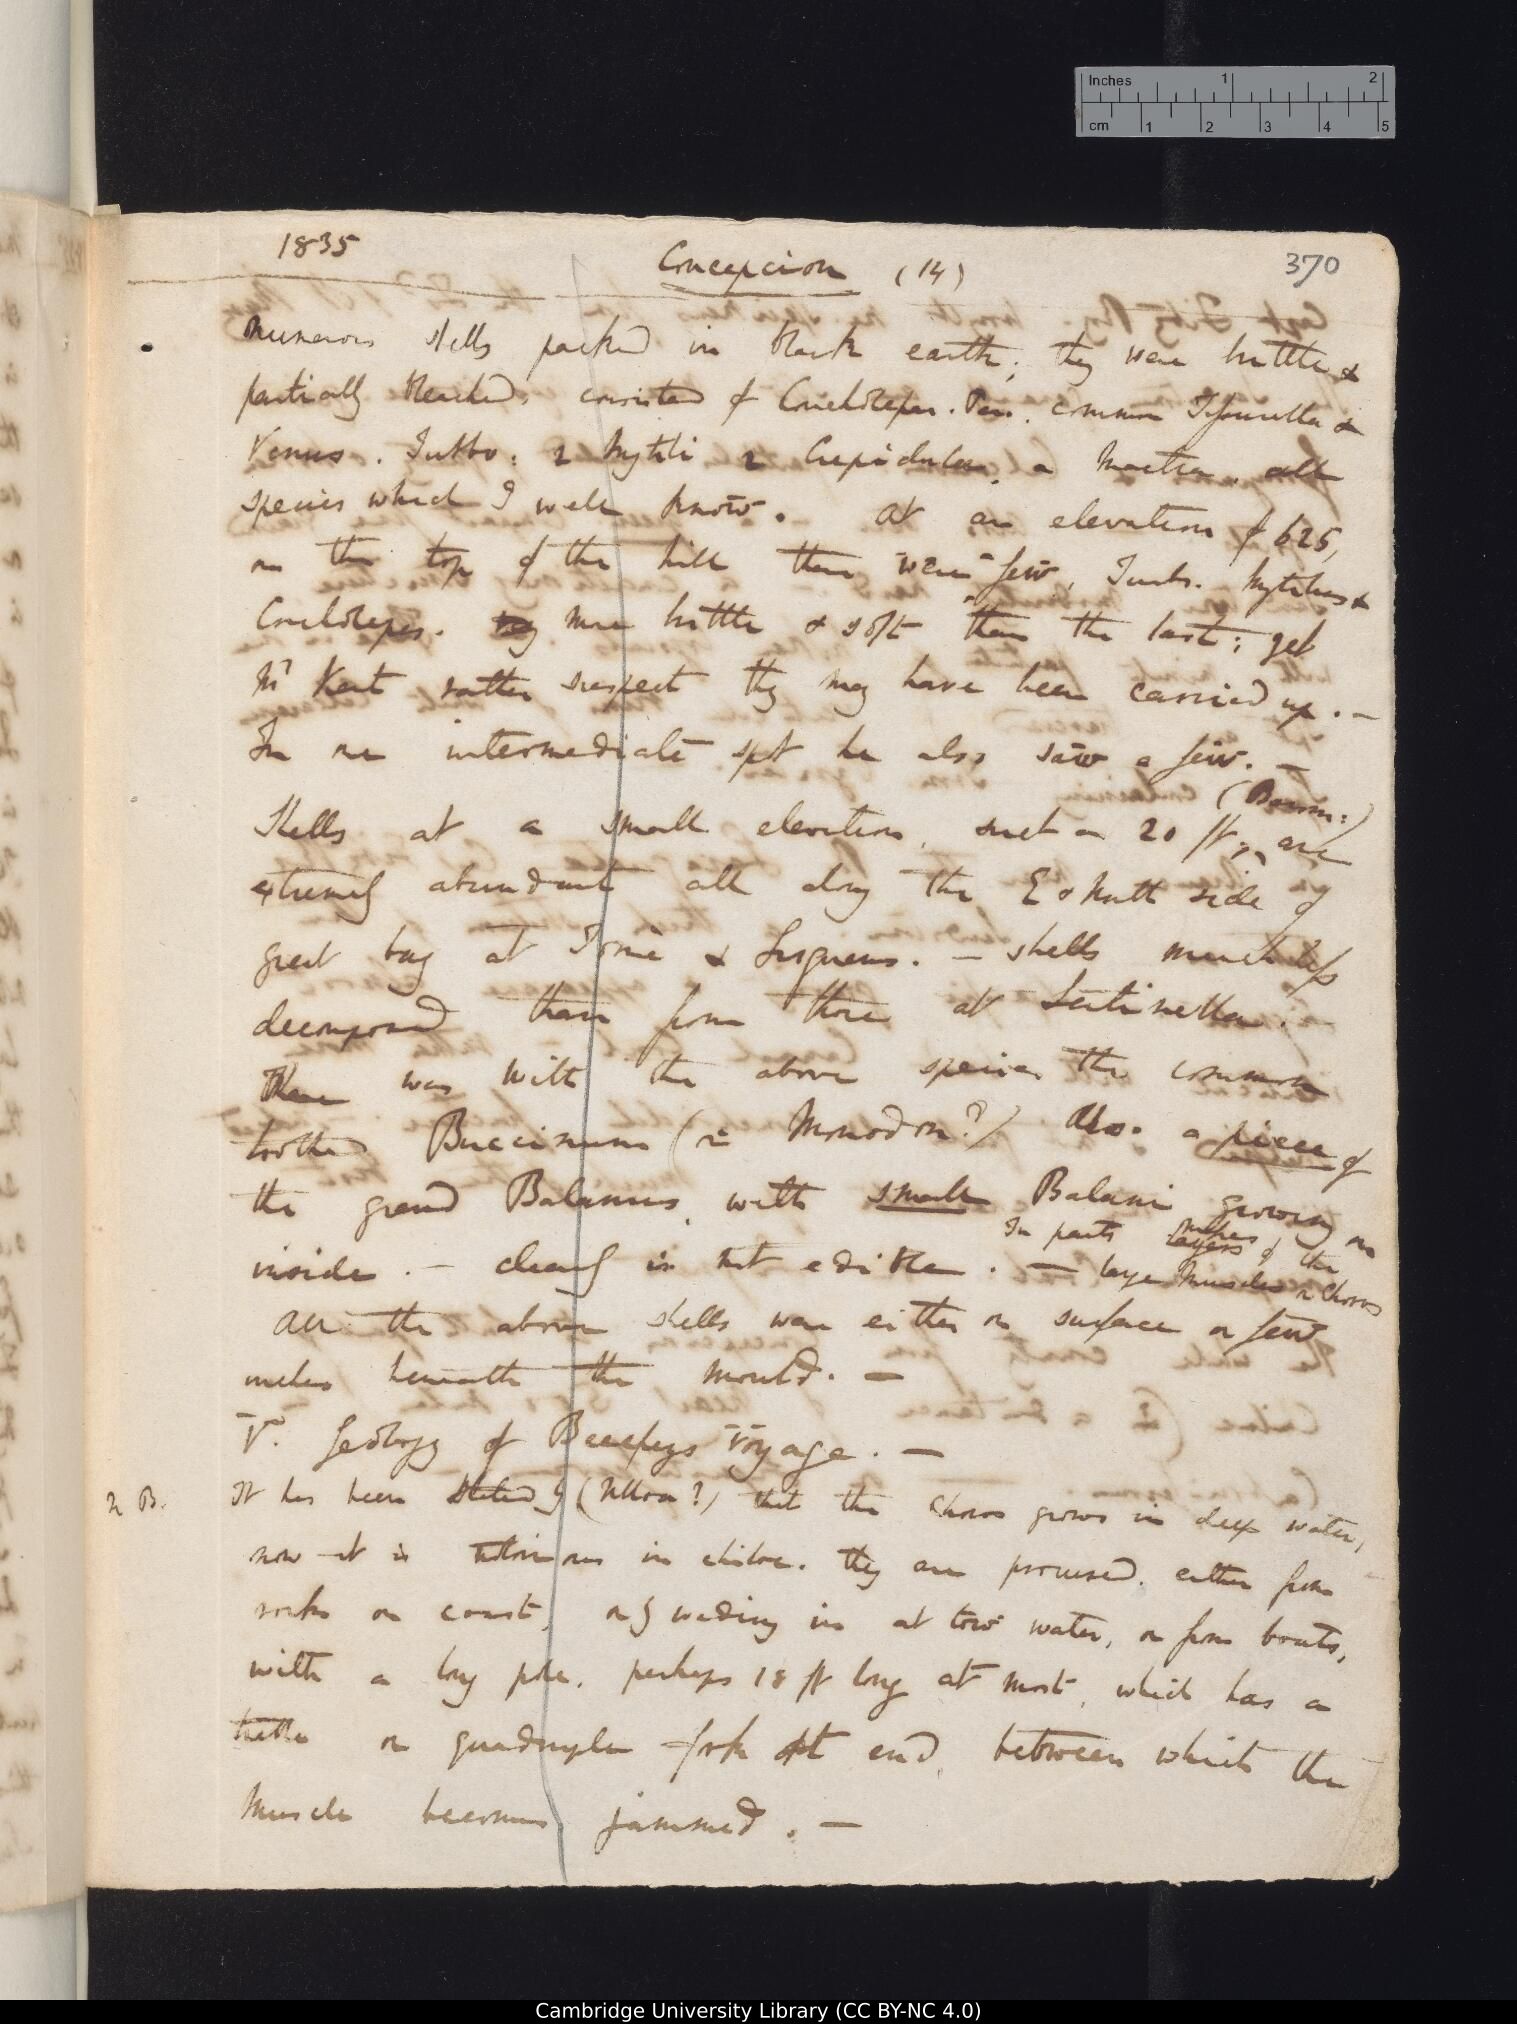 Inches 1 2
cm 1 2 3 4 5
1835 Concepcion (14) 370
numerous shells packed in black earth; they were brittle &
partially bleached, consisted of Concholepas. common Fissurella &
Venus. Turbo: 2 Mytili 2 Crepidula, a Mactra. all
species which I well know. At an elevation of 625,
on the top of the hill there were few, Turb. Mytilus &
Concholepas. more brittle & soft than the last; yet
Mr Kent rather suspect they may have been carried up. —
In an intermediate spot he also saw a few. —
(Barom:)
Shells at a small elevation, such as 20 ft; are
extremely abundant all along the E & North side of
great bay at Tome & Lirquen. — shells much less
decomposed than from those at Sentinella. —
There was with the above species the common
toothed Buccinum (or Monodon?) Also. a piece of
the grand Balanus, with small Balani growing on
In parts layers of the
inside. — clearly is not edible. — large Muscles or Choros
All the above shells were either on surface or few
inches beneath the mould. —
V. Geology of Beecheys Voyage. —
N B. It has been stated by (Ulloa?) that the Choros grows in deep water,
now it is notorious in Chiloe. they are procured. either from
rocks on coast, or by wading in at low water, or from boats,
with a long pole. perhaps 18 ft long at most, which has a
treble or quadruple fork at end, between which the
Muscle becomes jammed. —
Cambridge University Library (CC BY-NC 4.0)